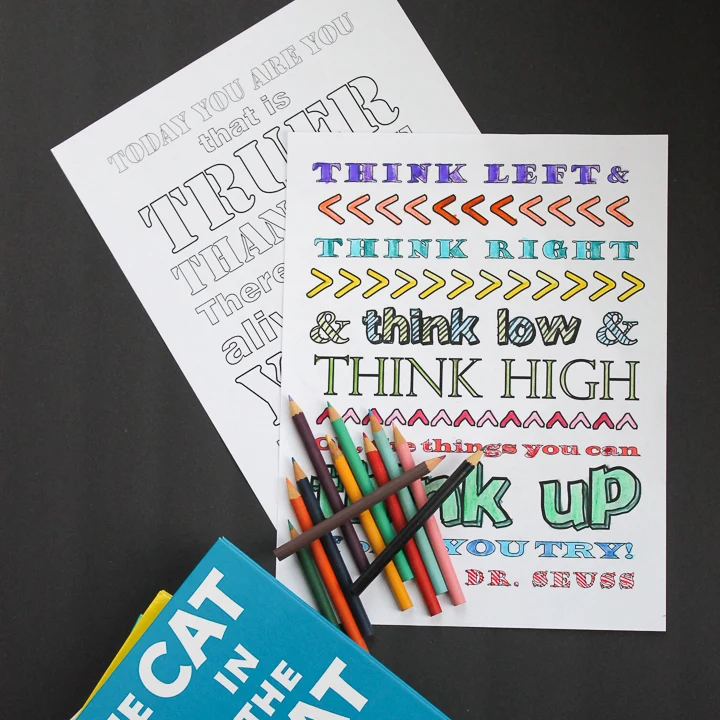 TODAY YOU ARE YOU
that is
TRUER
THAN
There
aliv
THINK LEFT &
THINK RIGHT
& think low &
THINK HIGH
things you can
nk up
YOU TRY!
DR. SEUSS
CAT
IN
THE